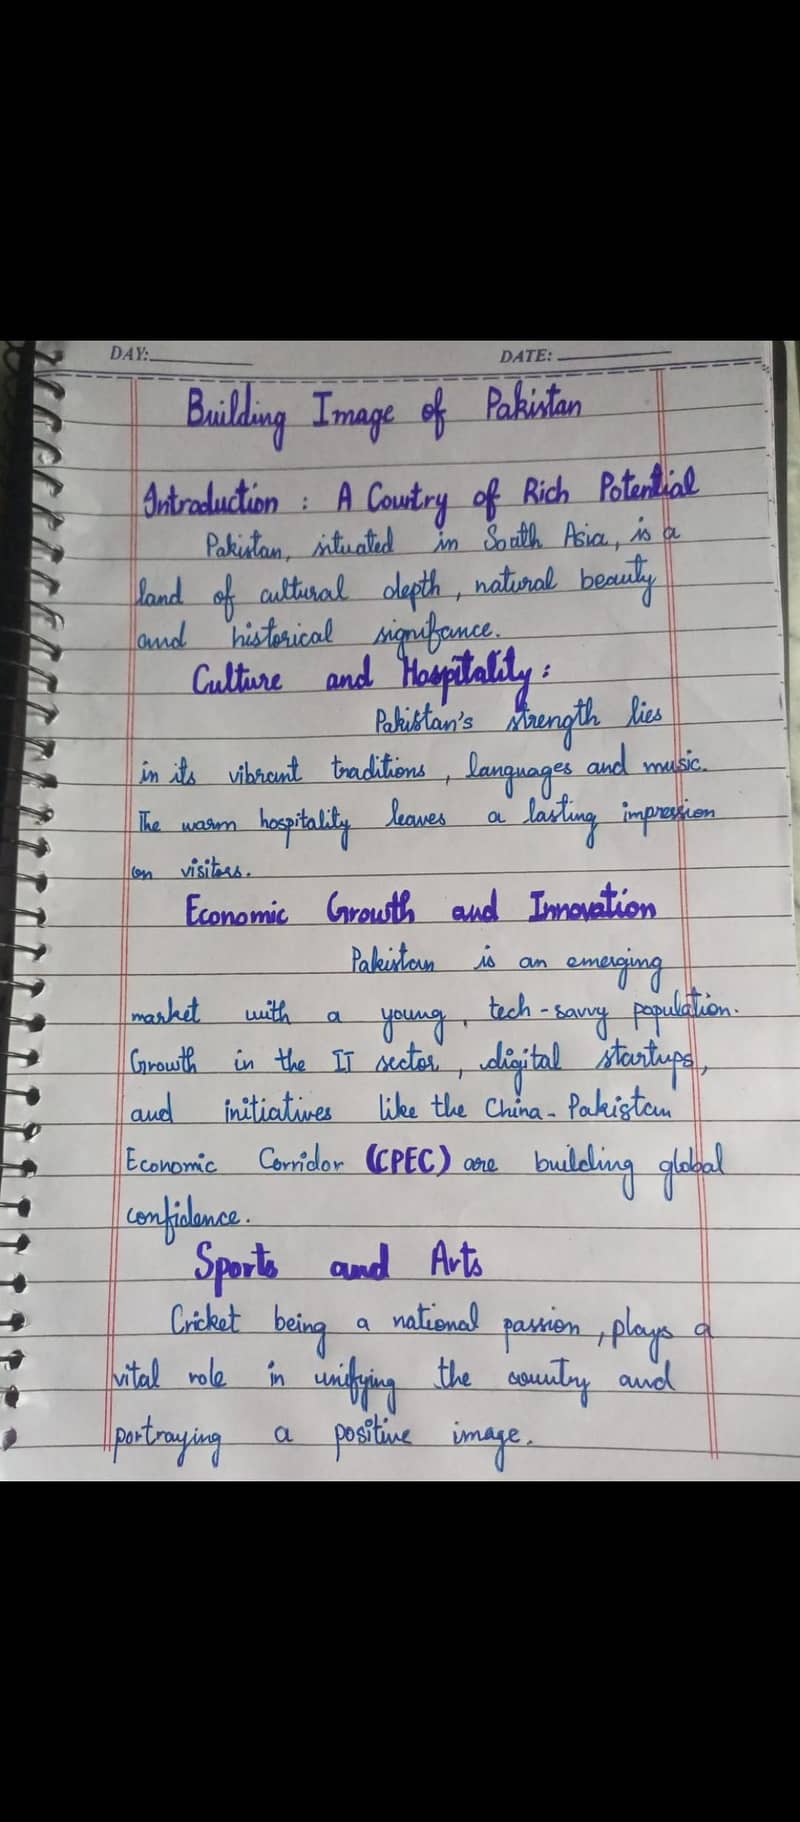 DAY:
DATE:
Building Image of Pakistan
Introduction : A Country of Rich Potential
Pakistan, situated in South Asia, is a
land of cultural depth, natural beauty
and historical signifance.
Culture and Hospitality:
Pakistan's strength lies
in its vibrant traditions, languages and music.
The warm hospitality leaves a lasting impression
on visitors.
Economic Growth and Innovation
Pakistan is an emerging
market with a young, tech-savvy population.
Growth in the IT sector, digital startups,
and initiatives like the China-Pakistan
Economic Corridor (CPEC) are building global
confidence.
Sports and Arts
Cricket being a national passion, plays a
vital role in unifying the country and
portraying a positive image.